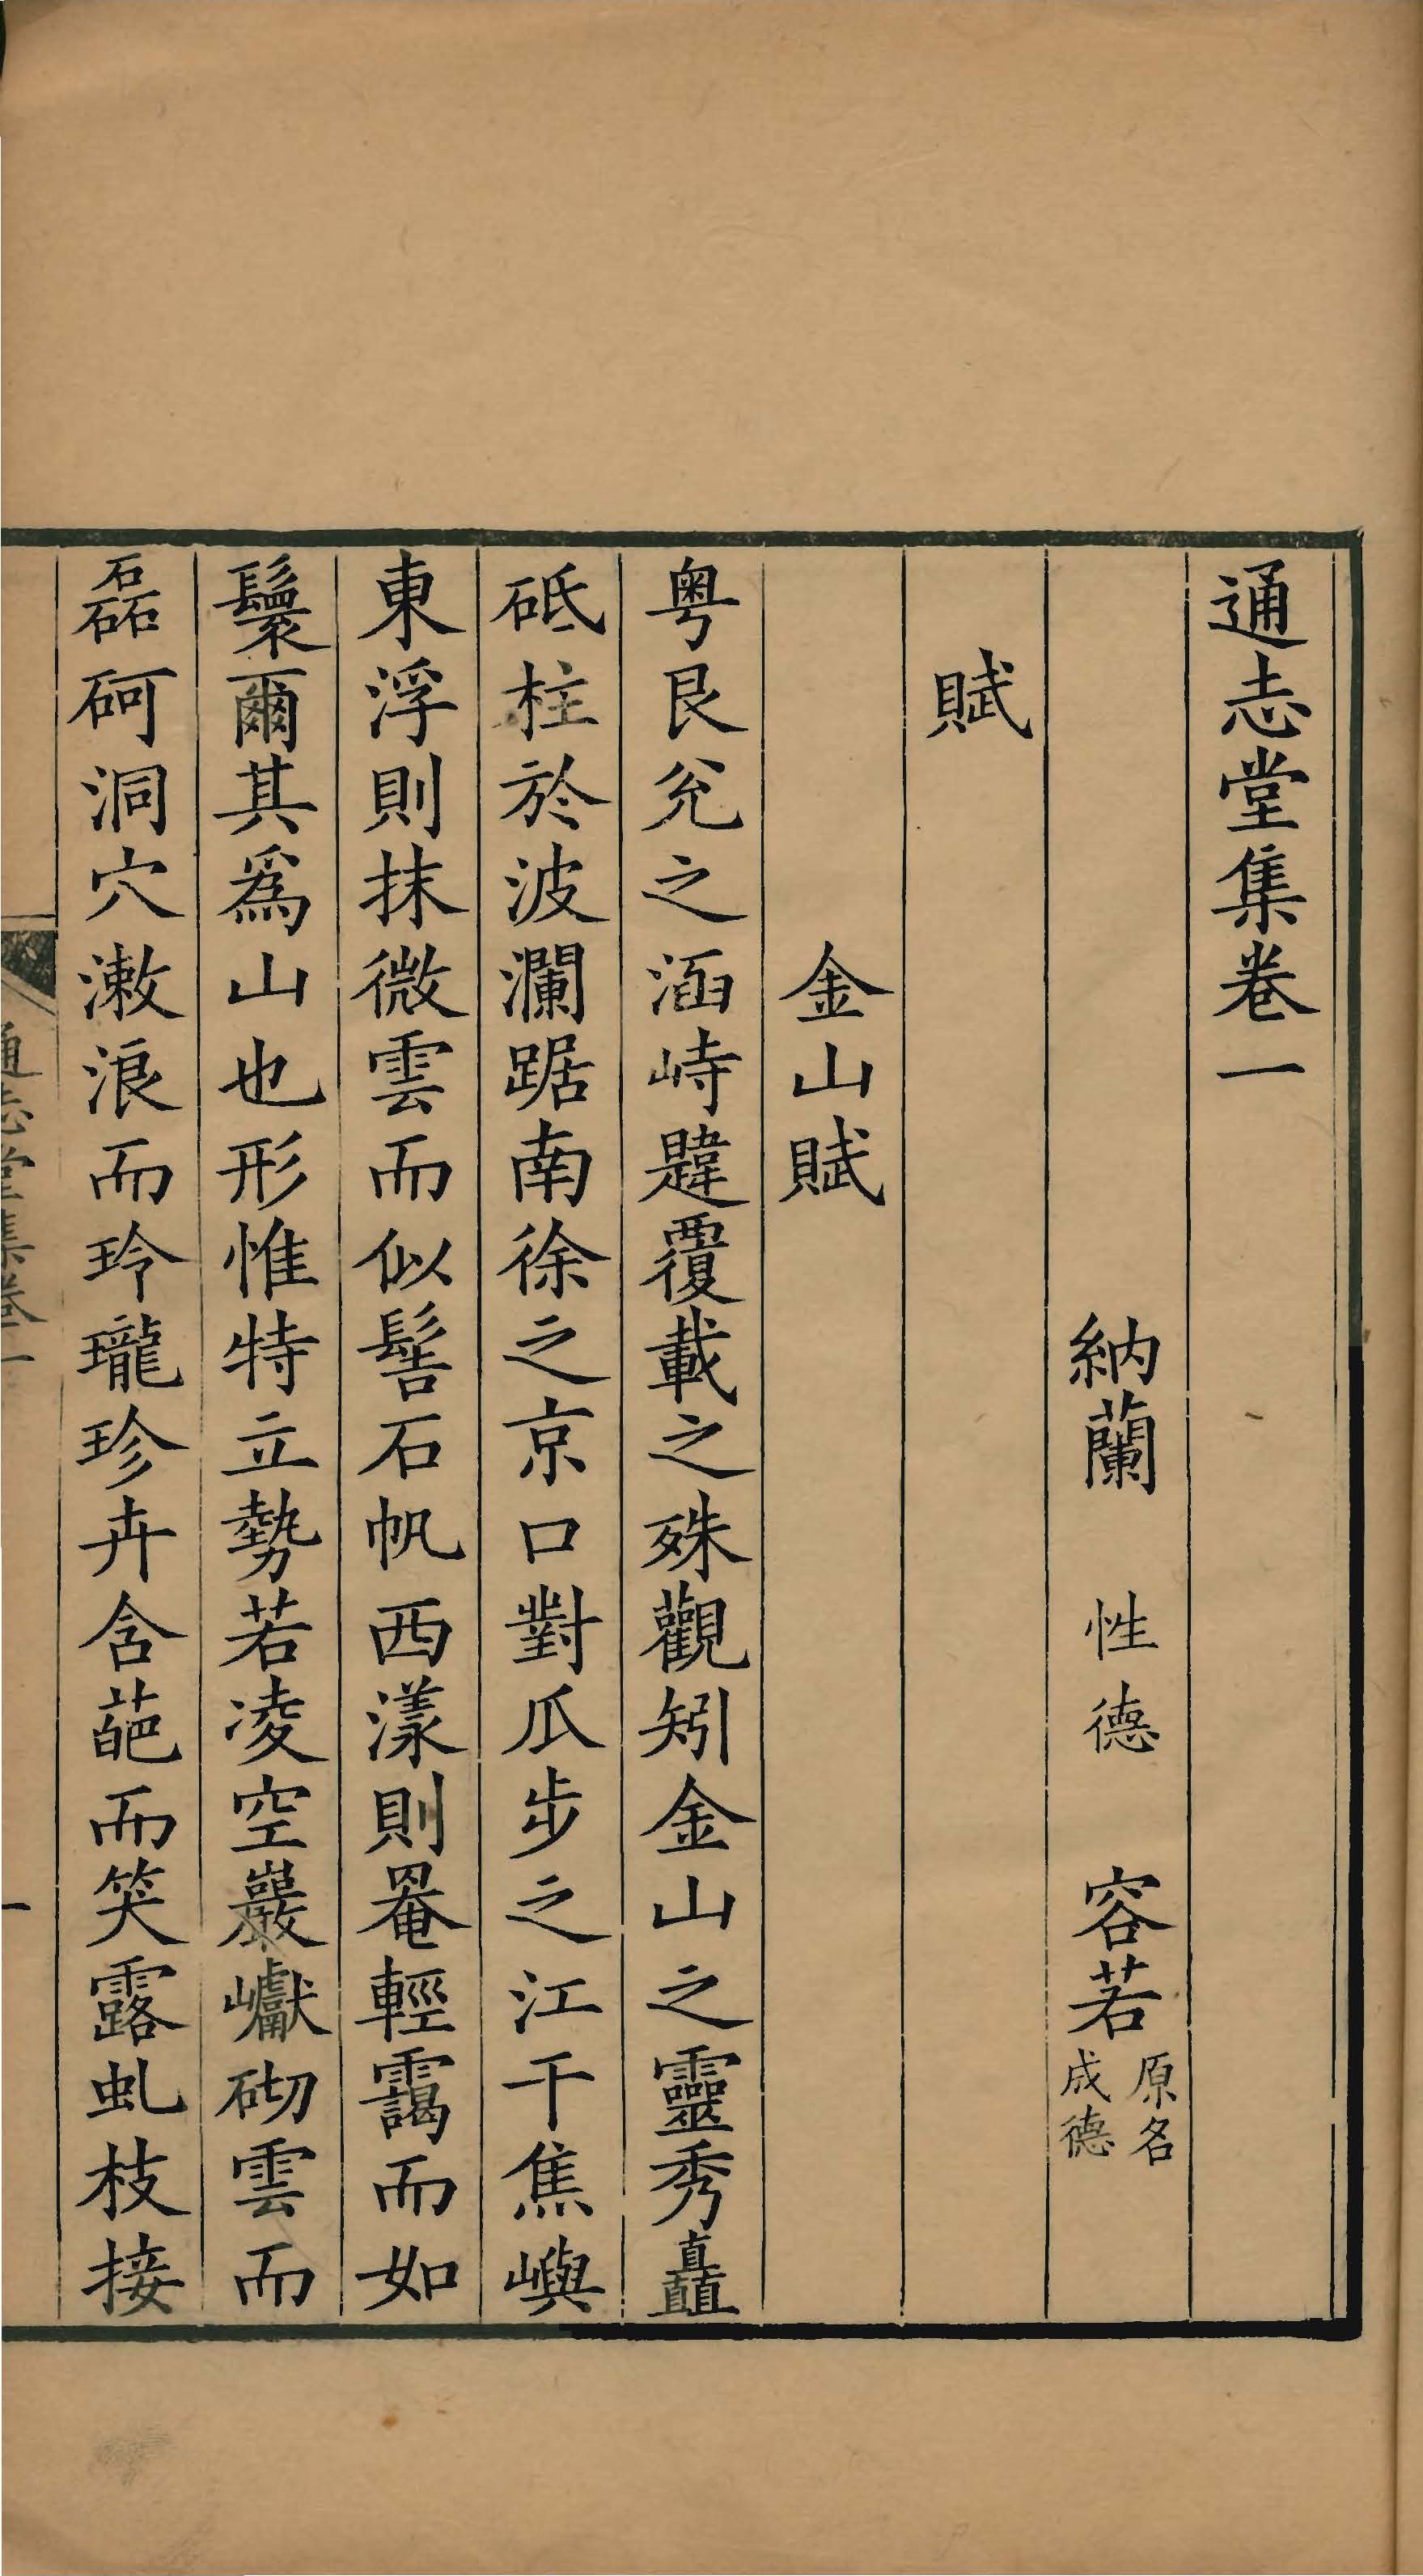 通志堂集卷一
納蘭 性德 容若 原名成德
賦
金山賦
粤艮兊之涵峙韙覆載之殊觀矧金山之靈秀矗
砥柱於波瀾踞南徐之京口對瓜步之江干焦嶼
東浮則抹微雲而似髻石帆西漾則罨輕靄而如
鬟爾其爲山也形惟特立勢若凌空巖巘砌雲而
磊砢洞穴漱浪而玲瓏珍卉含葩而笑露虬枝接
通志堂集卷一
一